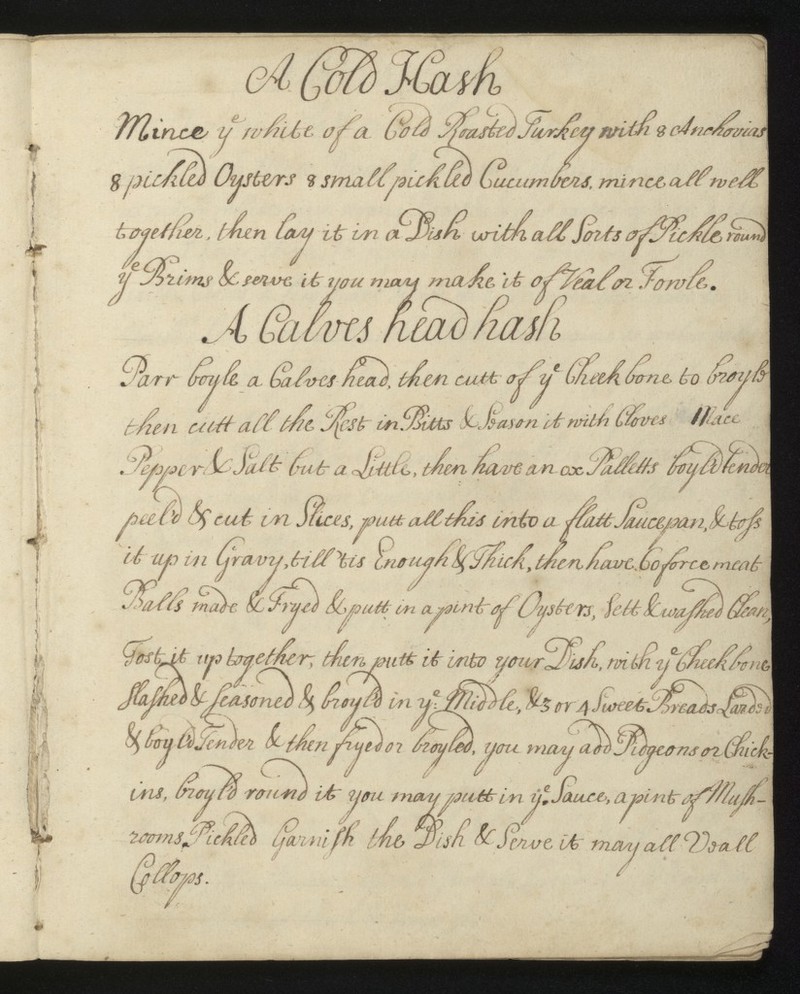 A Cold Hash
Mince yͤ white of a Cold Roasted Turkey with 8 Anchovias
8 pickled Oysters 8 small pickled Cucumbers. mince all well
together. then lay it in a Dish with all Sorts of Pickle round
yͤ Brims & serve it you may make it of Veal or Fowle.
A Calves head hash
Parr boyle a Calves head, then cutt of yͤ Cheek bone to broyle
then cutt all the Rest in Bitts & Season it with Cloves Mace
Pepper & Salt but a Little, then have an ox Palletts boyl'd tender
peel'd & cut in Slices, putt all this into a flatt Saucepan, & toss
it up in Gravy, till 'tis Enough & Thick, then have 60 force meat
Balls made & Fryed & putt in a pint of Oysters, Sett & washed Clean,
Tost it up together, then putt it into your Dish, with yͤ Cheek bone
slashed & seasoned & broyl'd in yͤ: Middle, & 3 or 4 Sweet Breads Larded
& boyl'd Tender & then fryed or broyled, you may add Pidgeons or Chick-
ins, broyl'd round it you may putt in yͤ. Sauce, a pint of Mush-
rooms Pickled Garnish the Dish & Serve it may all Veall
Collops.